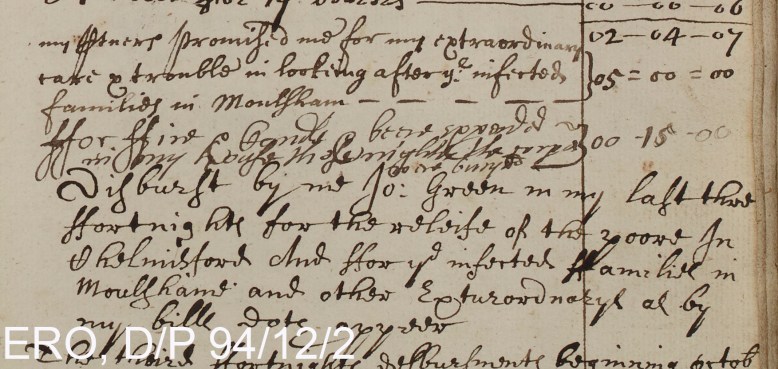 00 00 06
02 - 04 - 07
my ffreners promised me for my extraordinary
care & trouble in looking after ye infected } 05 = 00 = 00
families in Moulsham — — — — —
ffor ffire & Candl beere spended } 00 - 15 - 00
in my house those nights the corps
were buryed
Disburst by me Jo: Green in my last thre
ffortnights for the releife of the poore In
Chelmsford And ffor ye infected ffamilies in
Moulshame and other Exturordnarys as by
my bill doth appeer
The third ffortnights desbursments beginning octob
ERO, D/P 94/12/2